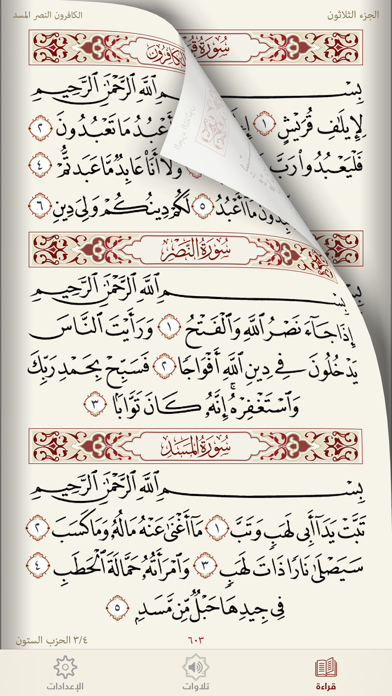 الجزء الثلاثون
الكافرون النصر المسد
سُورَةُ الكَافِرُونَ
بِسْمِ ٱللَّهِ ٱلرَّحْمَٰنِ ٱلرَّحِيمِ
لِإِيلَٰفِ قُرَيْشٍ ١ أَعْبُدُ مَا تَعْبُدُونَ ٢
فَلْيَعْبُدُوا۟ رَبَّ وَلَآ أَنَا۠ عَابِدٌ مَّا عَبَدتُّمْ ٤
مَآ أَعْبُدُ ٥ لَكُمْ دِينُكُمْ وَلِىَ دِينِ ٦
سُورَةُ النَّصْرِ
بِسْمِ ٱللَّهِ ٱلرَّحْمَٰنِ ٱلرَّحِيمِ
إِذَا جَآءَ نَصْرُ ٱللَّهِ وَٱلْفَتْحُ ١ وَرَأَيْتَ ٱلنَّاسَ
يَدْخُلُونَ فِى دِينِ ٱللَّهِ أَفْوَاجًا ٢ فَسَبِّحْ بِحَمْدِ رَبِّكَ
وَٱسْتَغْفِرْهُ ۚ إِنَّهُۥ كَانَ تَوَّابًۢا ٣
سُورَةُ المَسَدِ
بِسْمِ ٱللَّهِ ٱلرَّحْمَٰنِ ٱلرَّحِيمِ
تَبَّتْ يَدَآ أَبِى لَهَبٍ وَتَبَّ ١ مَآ أَغْنَىٰ عَنْهُ مَالُهُۥ وَمَا كَسَبَ ٢
سَيَصْلَىٰ نَارًا ذَاتَ لَهَبٍ ٣ وَٱمْرَأَتُهُۥ حَمَّالَةَ ٱلْحَطَبِ ٤
فِى جِيدِهَا حَبْلٌ مِّن مَّسَدٍۭ ٥
٦٠٣
٣/٤ الحزب الستون
قراءة
تلاوات
الإعدادات